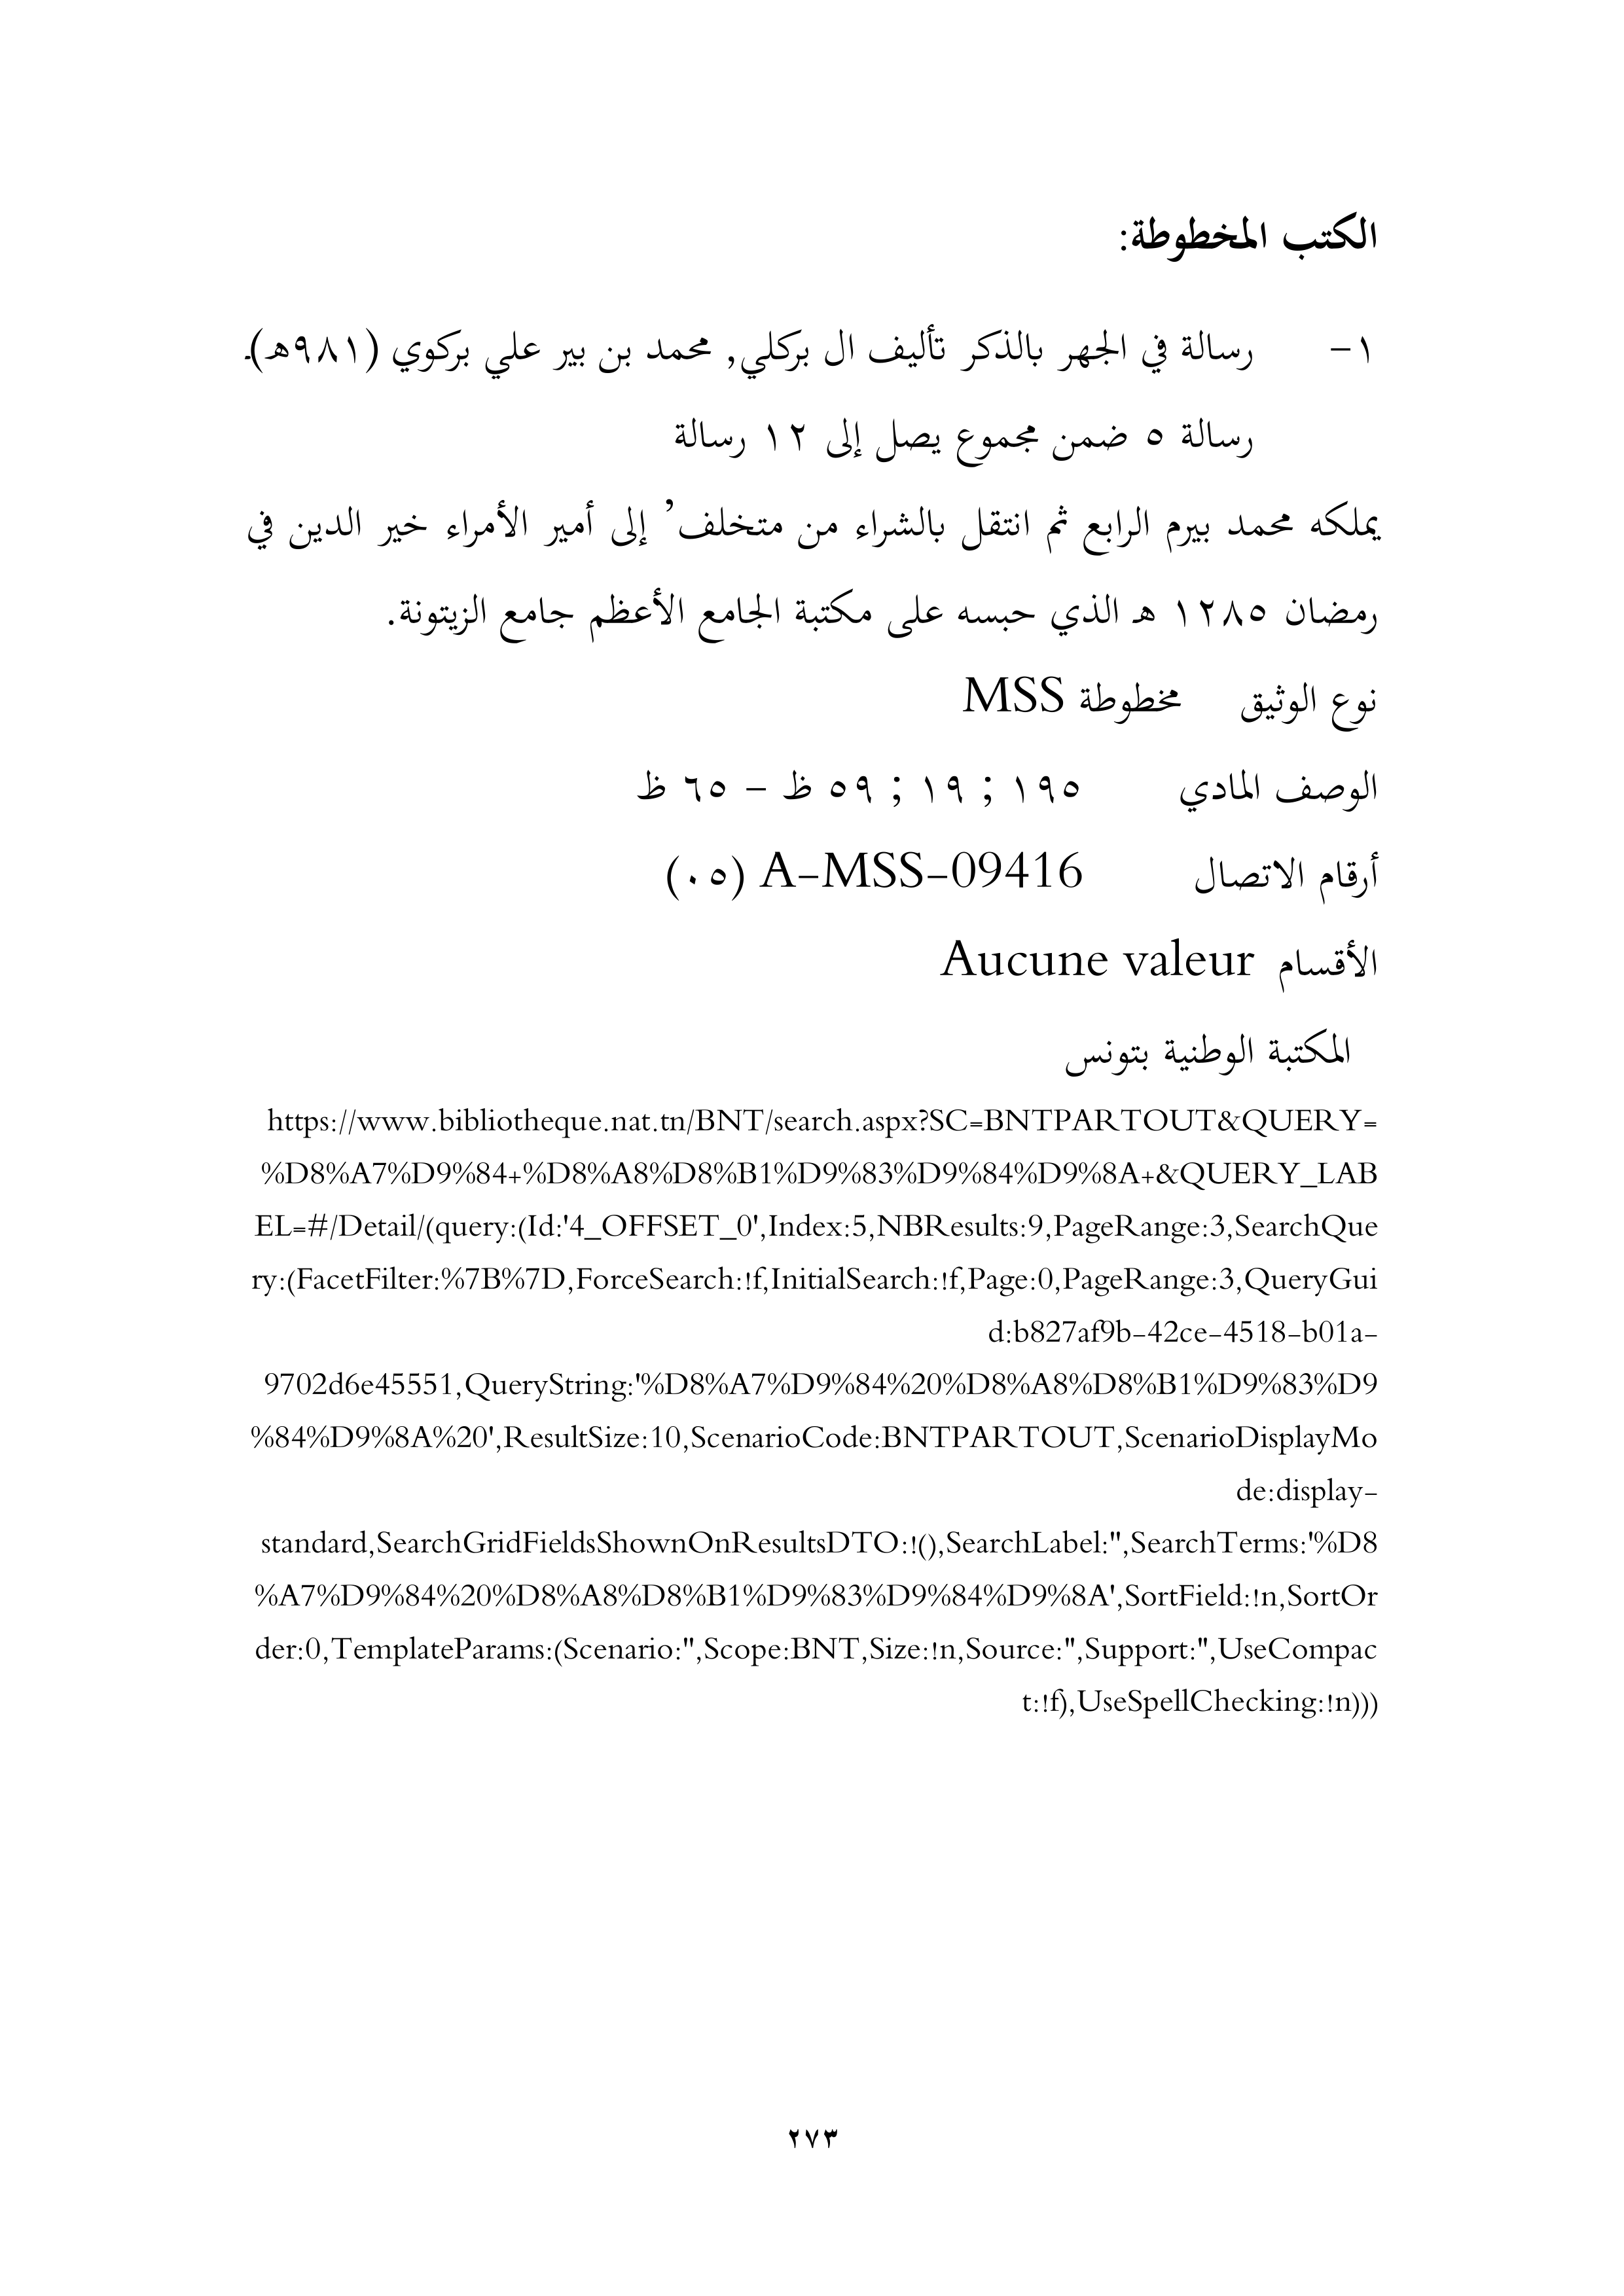 الكتب المخطوطة:
١- رسالة في الجهر بالذكر تأليف ال بركلي, محمد بن بير علي بركوي (٩٨١هـ).
رسالة ٥ ضمن مجموع يصل إلى ١٢ رسالة
يملكه محمد بيرم الرابع ثم انتقل بالشراء من متخلف’ إلى أمير الأمراء خير الدين في
رمضان ١٢٨٥ هـ الذي حبسه على مكتبة الجامع الأعظم جامع الزيتونة.
نوع الوثيق مخطوطة MSS
الوصف المادي ١٩٥ ; ١٩ ; ٥٩ ظ - ٦٥ ظ
أرقام الاتصال A-MSS-09416 (٠٥)
الأقسام Aucune valeur
المكتبة الوطنية بتونس
https://www.bibliotheque.nat.tn/BNT/search.aspx?SC=BNTPARTOUT&QUERY=
%D8%A7%D9%84+%D8%A8%D8%B1%D9%83%D9%84%D9%8A+&QUERY_LAB
EL=#/Detail/(query:(Id:'4_OFFSET_0',Index:5,NBResults:9,PageRange:3,SearchQue
ry:(FacetFilter:%7B%7D,ForceSearch:!f,InitialSearch:!f,Page:0,PageRange:3,QueryGui
d:b827af9b-42ce-4518-b01a-
9702d6e45551,QueryString:'%D8%A7%D9%84%20%D8%A8%D8%B1%D9%83%D9
%84%D9%8A%20',ResultSize:10,ScenarioCode:BNTPARTOUT,ScenarioDisplayMo
de:display-
standard,SearchGridFieldsShownOnResultsDTO:!(),SearchLabel:'',SearchTerms:'%D8
%A7%D9%84%20%D8%A8%D8%B1%D9%83%D9%84%D9%8A',SortField:!n,SortOr
der:0,TemplateParams:(Scenario:'',Scope:BNT,Size:!n,Source:'',Support:'',UseCompac
t:!f),UseSpellChecking:!n)))
٢٧٣